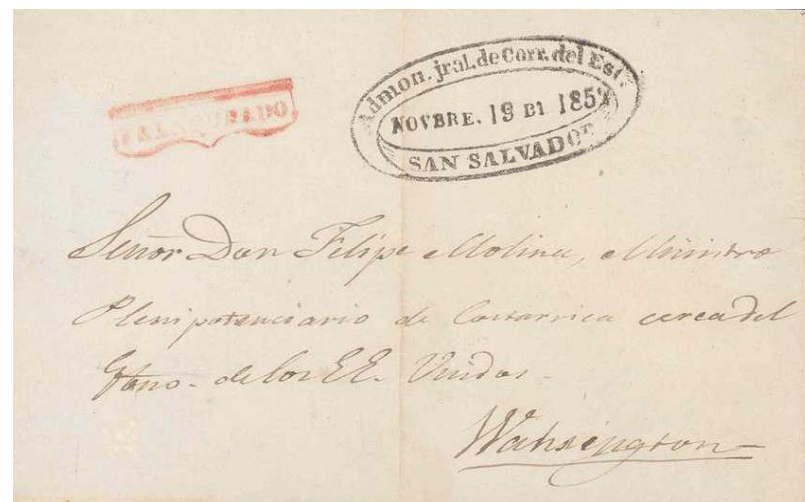 FRANQUEADO
Admon. jral. de Corr. del Est.
NOVBRE. 19 DE 1852
SAN SALVADOR
Señor Don Felipe Molina, Ministro
Plenipotenciario de Costarrica cerca del
Gbno. de los EE. Unidos.
Wahsington